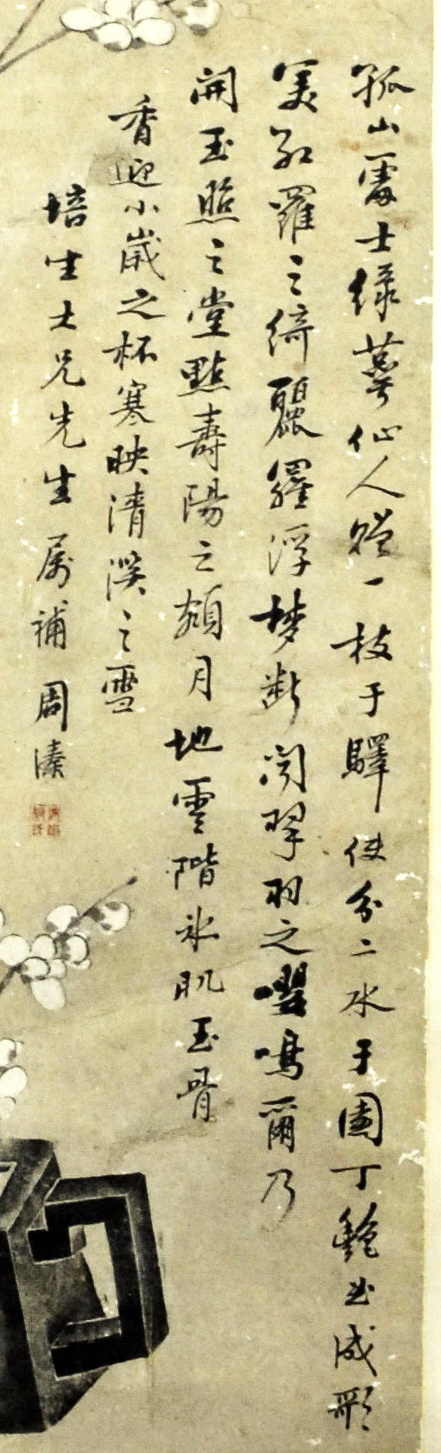 孤山處士綠萼仙人贈一枝于驛使分二水于園丁艷出成形
美紅羅之綺麗羅浮夢斷聞翠羽之嚶鳴爾乃
開玉照之堂點壽陽之額月地雲階冰肌玉骨
香迎小歲之杯寒映清溪之雪
培生士兄先生屬補 周溱